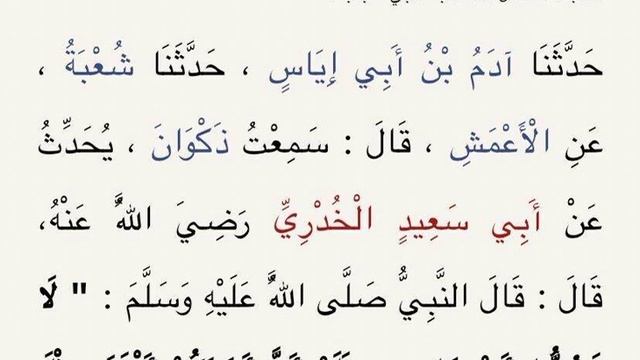 حَدَّثَنَا آدَمُ بْنُ أَبِي إِيَاسٍ ، حَدَّثَنَا شُعْبَةُ ،
عَنِ الْأَعْمَشِ ، قَالَ : سَمِعْتُ ذَكْوَانَ ، يُحَدِّثُ
عَنْ أَبِي سَعِيدٍ الْخُدْرِيِّ رَضِيَ اللَّهُ عَنْهُ،
قَالَ : قَالَ النَّبِيُّ صَلَّى اللَّهُ عَلَيْهِ وَسَلَّمَ : " لَا